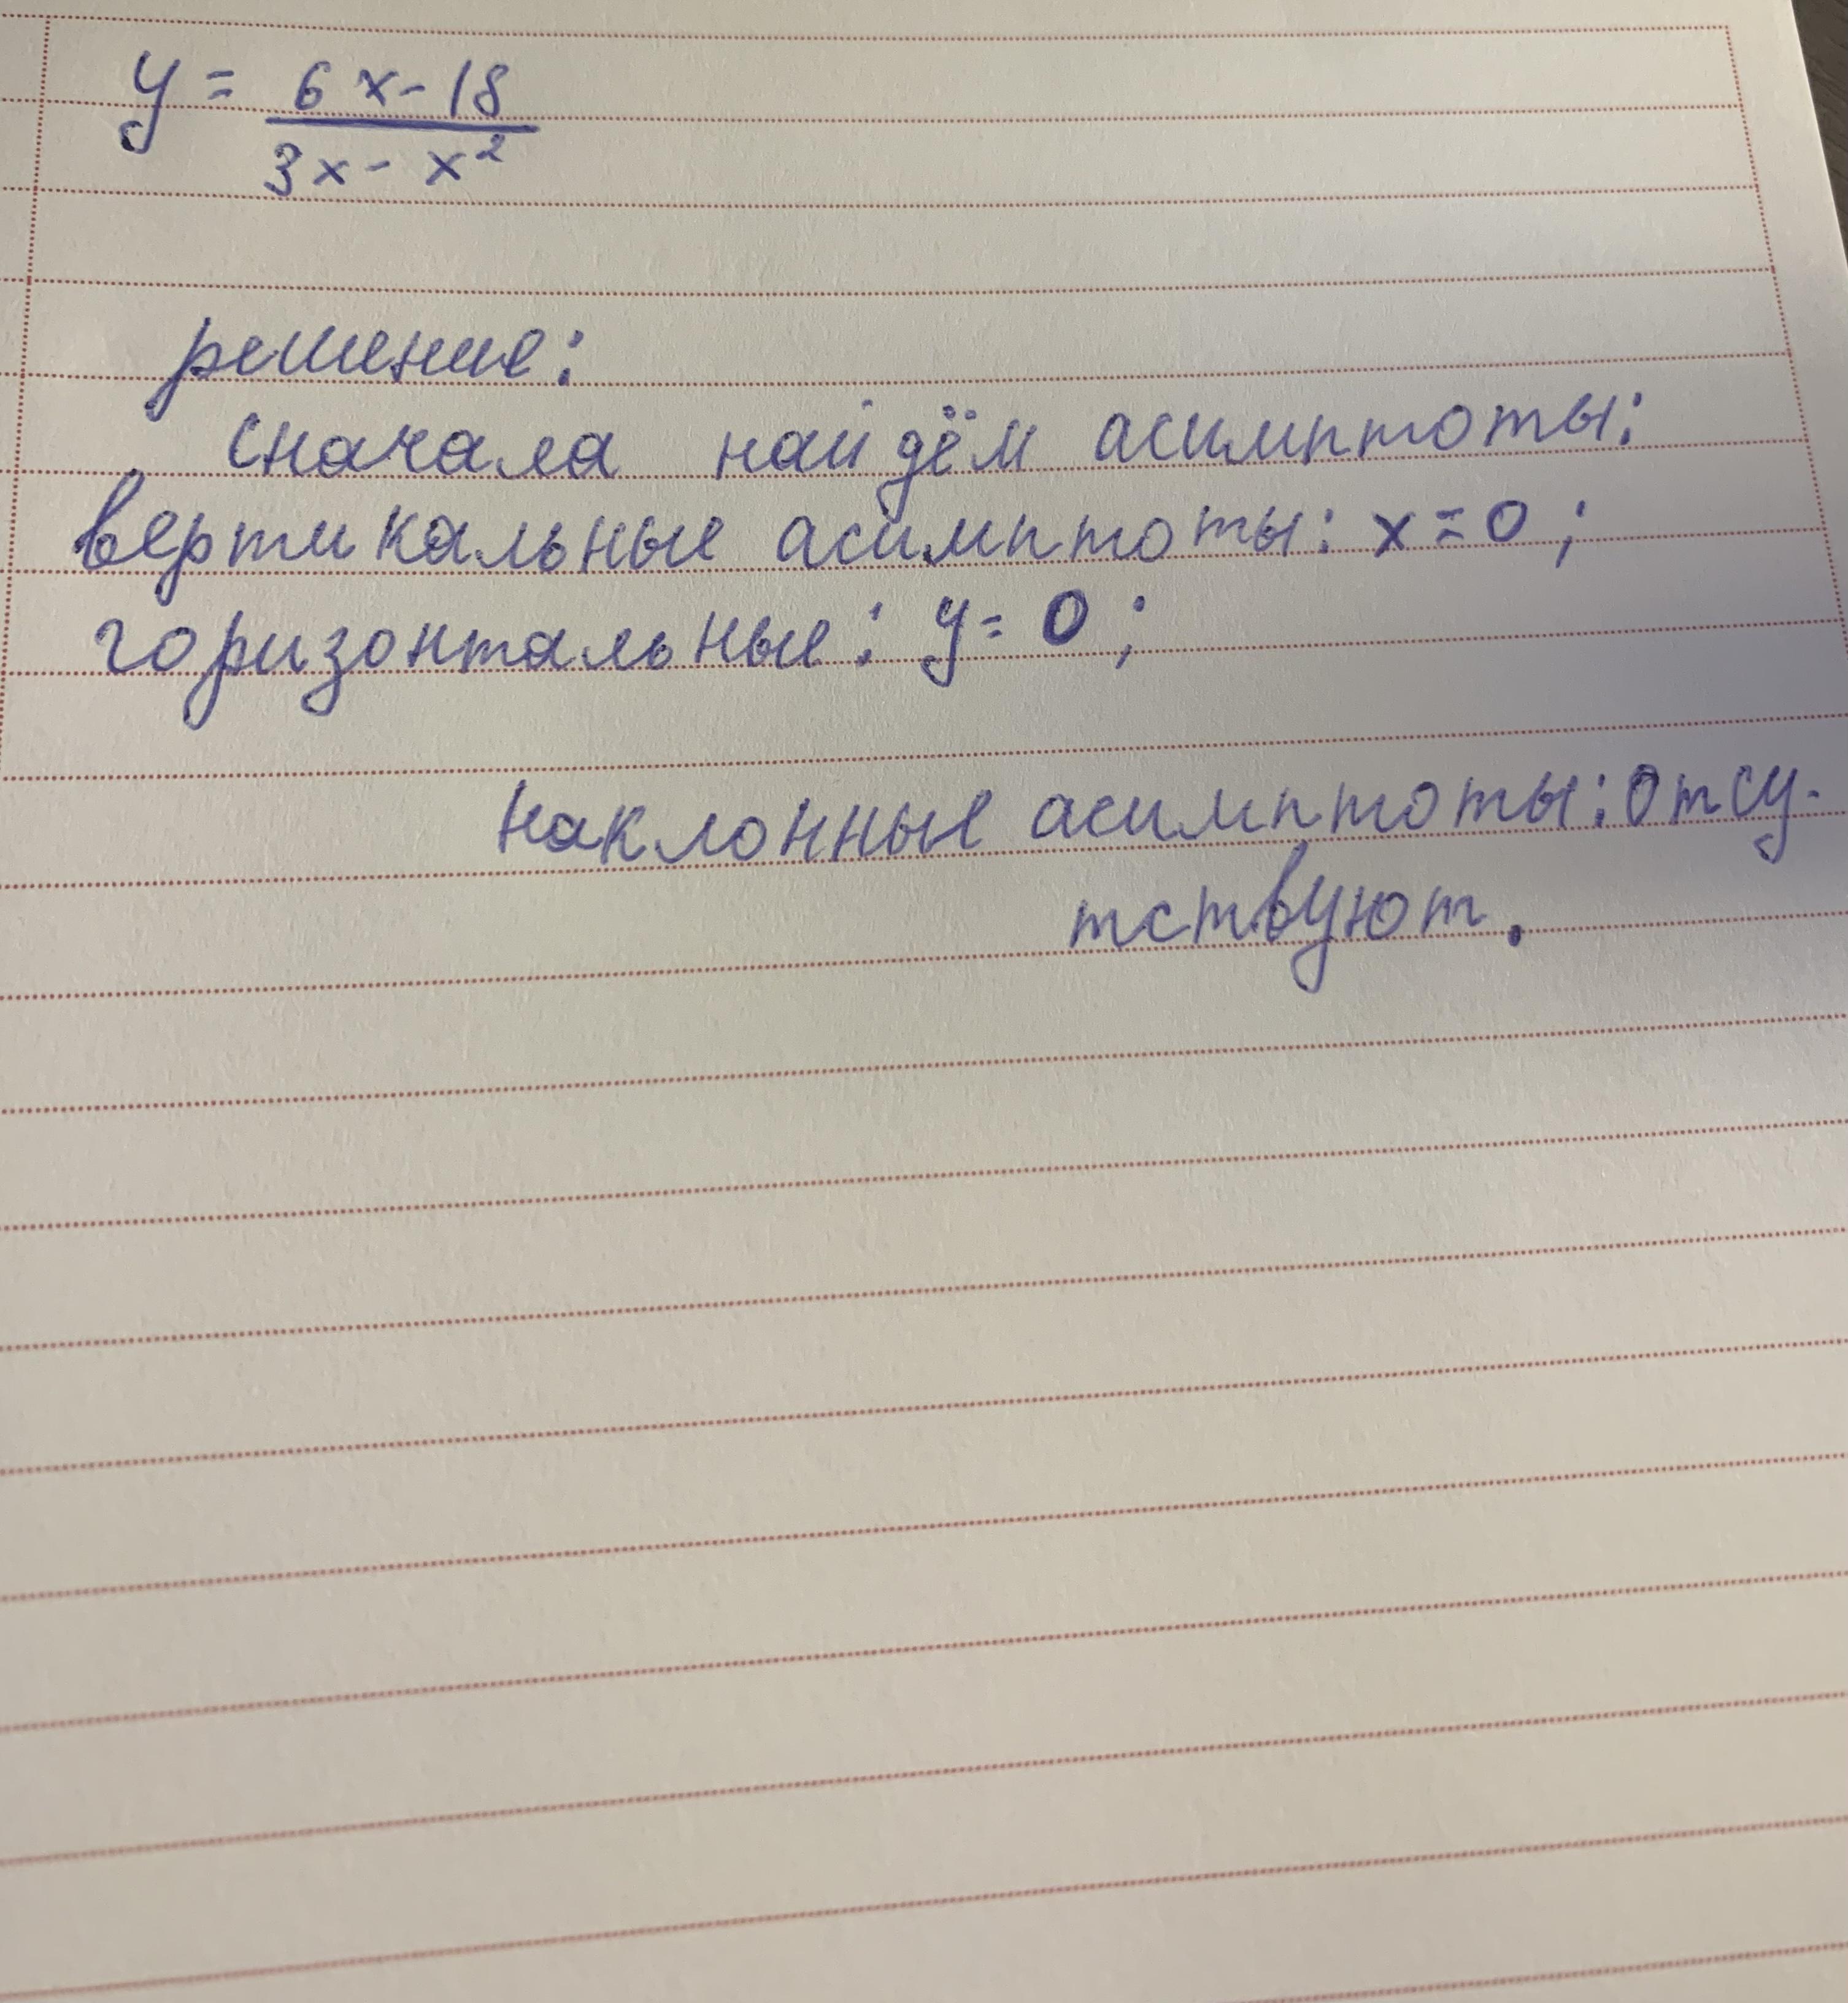 y = (6x-18)/(3x-x²)
решение:
сначала найдём асимптоты:
вертикальные асимптоты: x=0;
горизонтальные: y=0;
наклонные асимптоты: отсу-
тствуют.